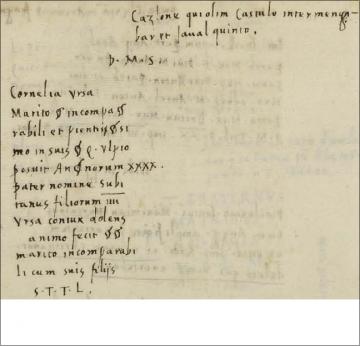 Cazlone qui olim Castulo inter mengi-
bar et javalquinto.
D. M. S.
Cornelia Vrsa
Marito ∅ incompa∅
rabili et pientis∅si
mo in suis ∅ Q. Vlpio
posuit An∅norum XXXX.
pater nomine Subi
tanus filiorum IIII
Vrsa coniux dolens
animo fecit ∅∅
marito incomparabi
li cum suis filijs
S. T. T. L.